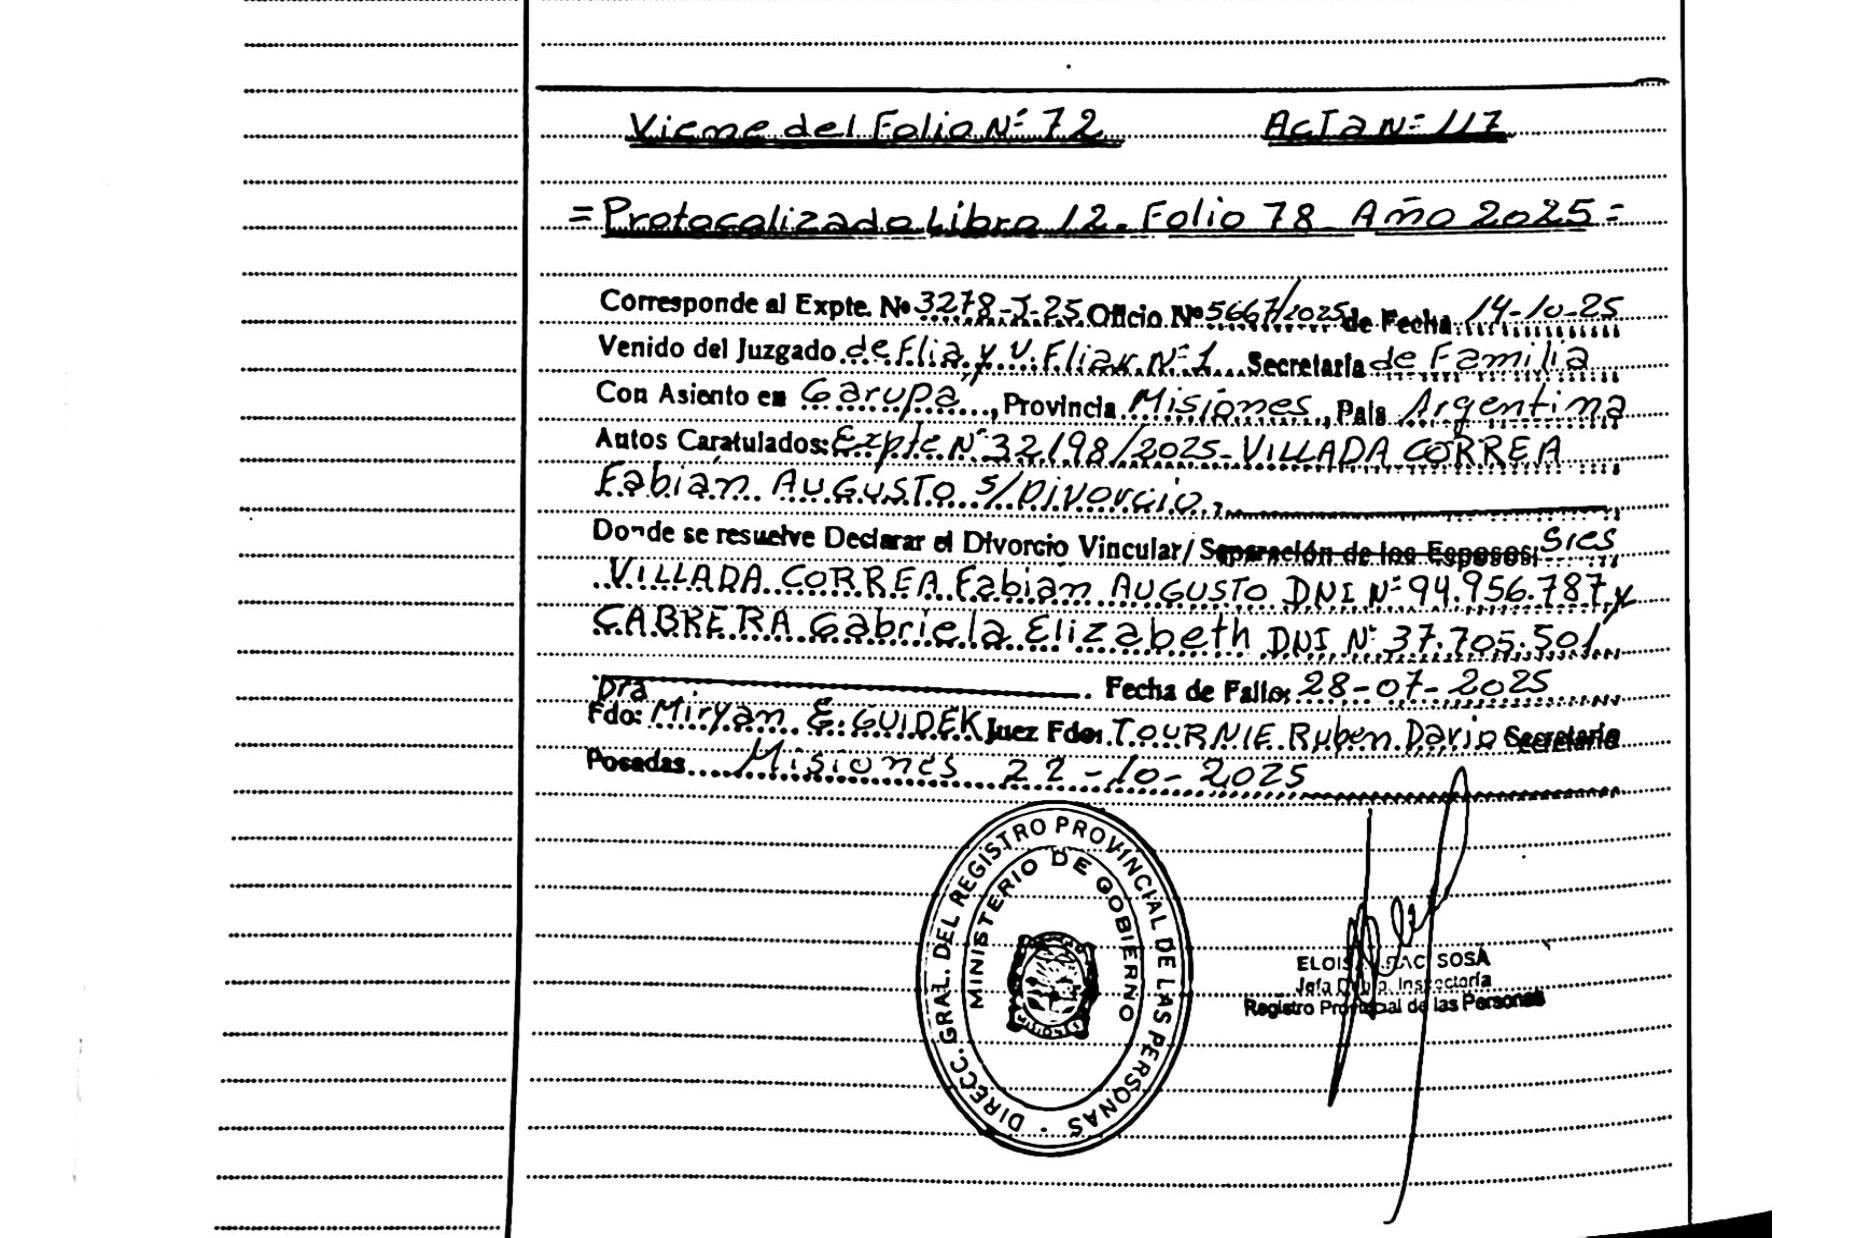 Viene del Folio Nº 72 Acta Nº 117
= Protocolizado Libro 12. Folio 78 Año 2025 =
Corresponde al Expte. Nº 3278-J-25 Oficio Nº 5667/2025 de Fecha 14-10-25
Venido del Juzgado de Flia y V. Fliar Nº 1 Secretaría de Familia
Con Asiento en Garupá, Provincia Misiones, País Argentina
Autos Caratulados: Expte Nº 32.198/2025 - VILLADA CORREA
Fabián AUGUSTO s/ Divorcio.
Donde se resuelve Declarar el Divorcio Vincular/ Separación de los Esposos: Sres
VILLADA CORREA Fabián AUGUSTO DNI Nº 94.956.787 y
CABRERA Gabriela Elizabeth DNI Nº 37.705.501
Fecha de Fallo: 28-07-2025
Dra
Fdo: Miryan E. GUIDEK Juez Fdo: TOURNIE Ruben Dario Secretario
Posadas Misiones 22-10-2025
DIRECC. GRAL. DEL REGISTRO PROVINCIAL DE LAS PERSONAS -
MINISTERIO DE GOBIERNO
SOSA
Jefa Inspectoría
Registro Provincial de las Personas